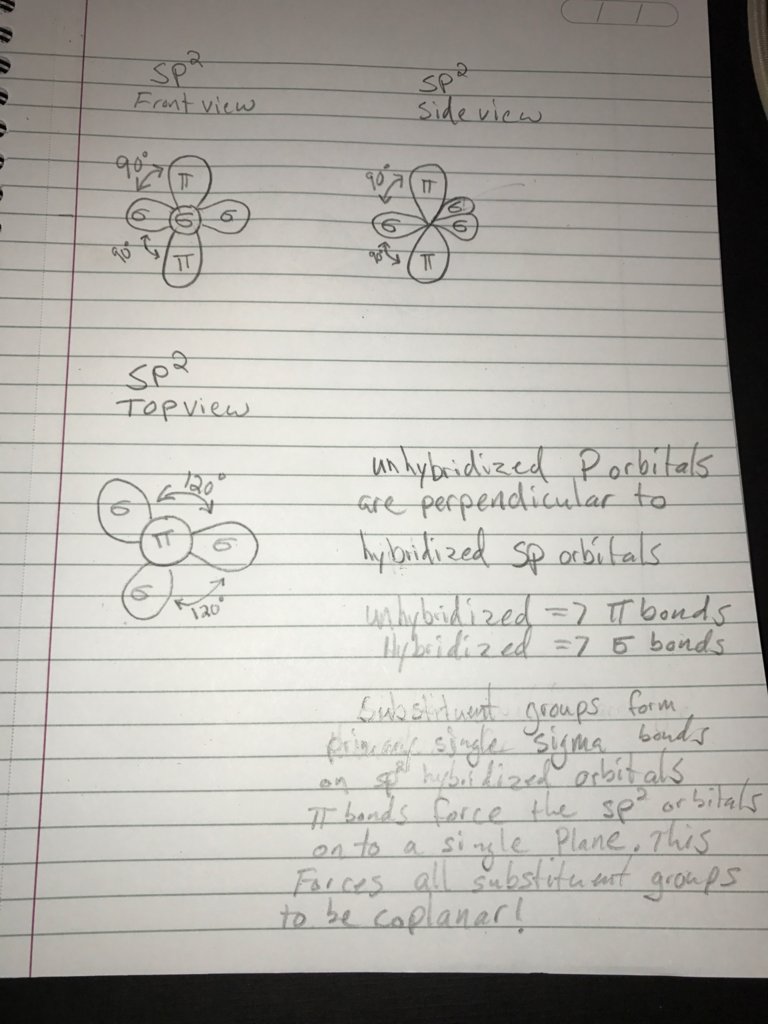 SP²
Front view
SP²
Side view
90°
π
σ
σ
σ
90°
π
90°
π
σ
σ
σ
90°
π
SP²
TOP view
120°
σ
π
σ
σ
120°
unhybridized P orbitals
are perpendicular to
hybridized sp orbitals
unhybridized => π bonds
Hybridized => σ bonds
Substituent groups form
primary single sigma bonds
on sp² hybridized orbitals
π bonds force the sp² orbitals
on to a single Plane. This
Forces all substituent groups
to be coplanar!